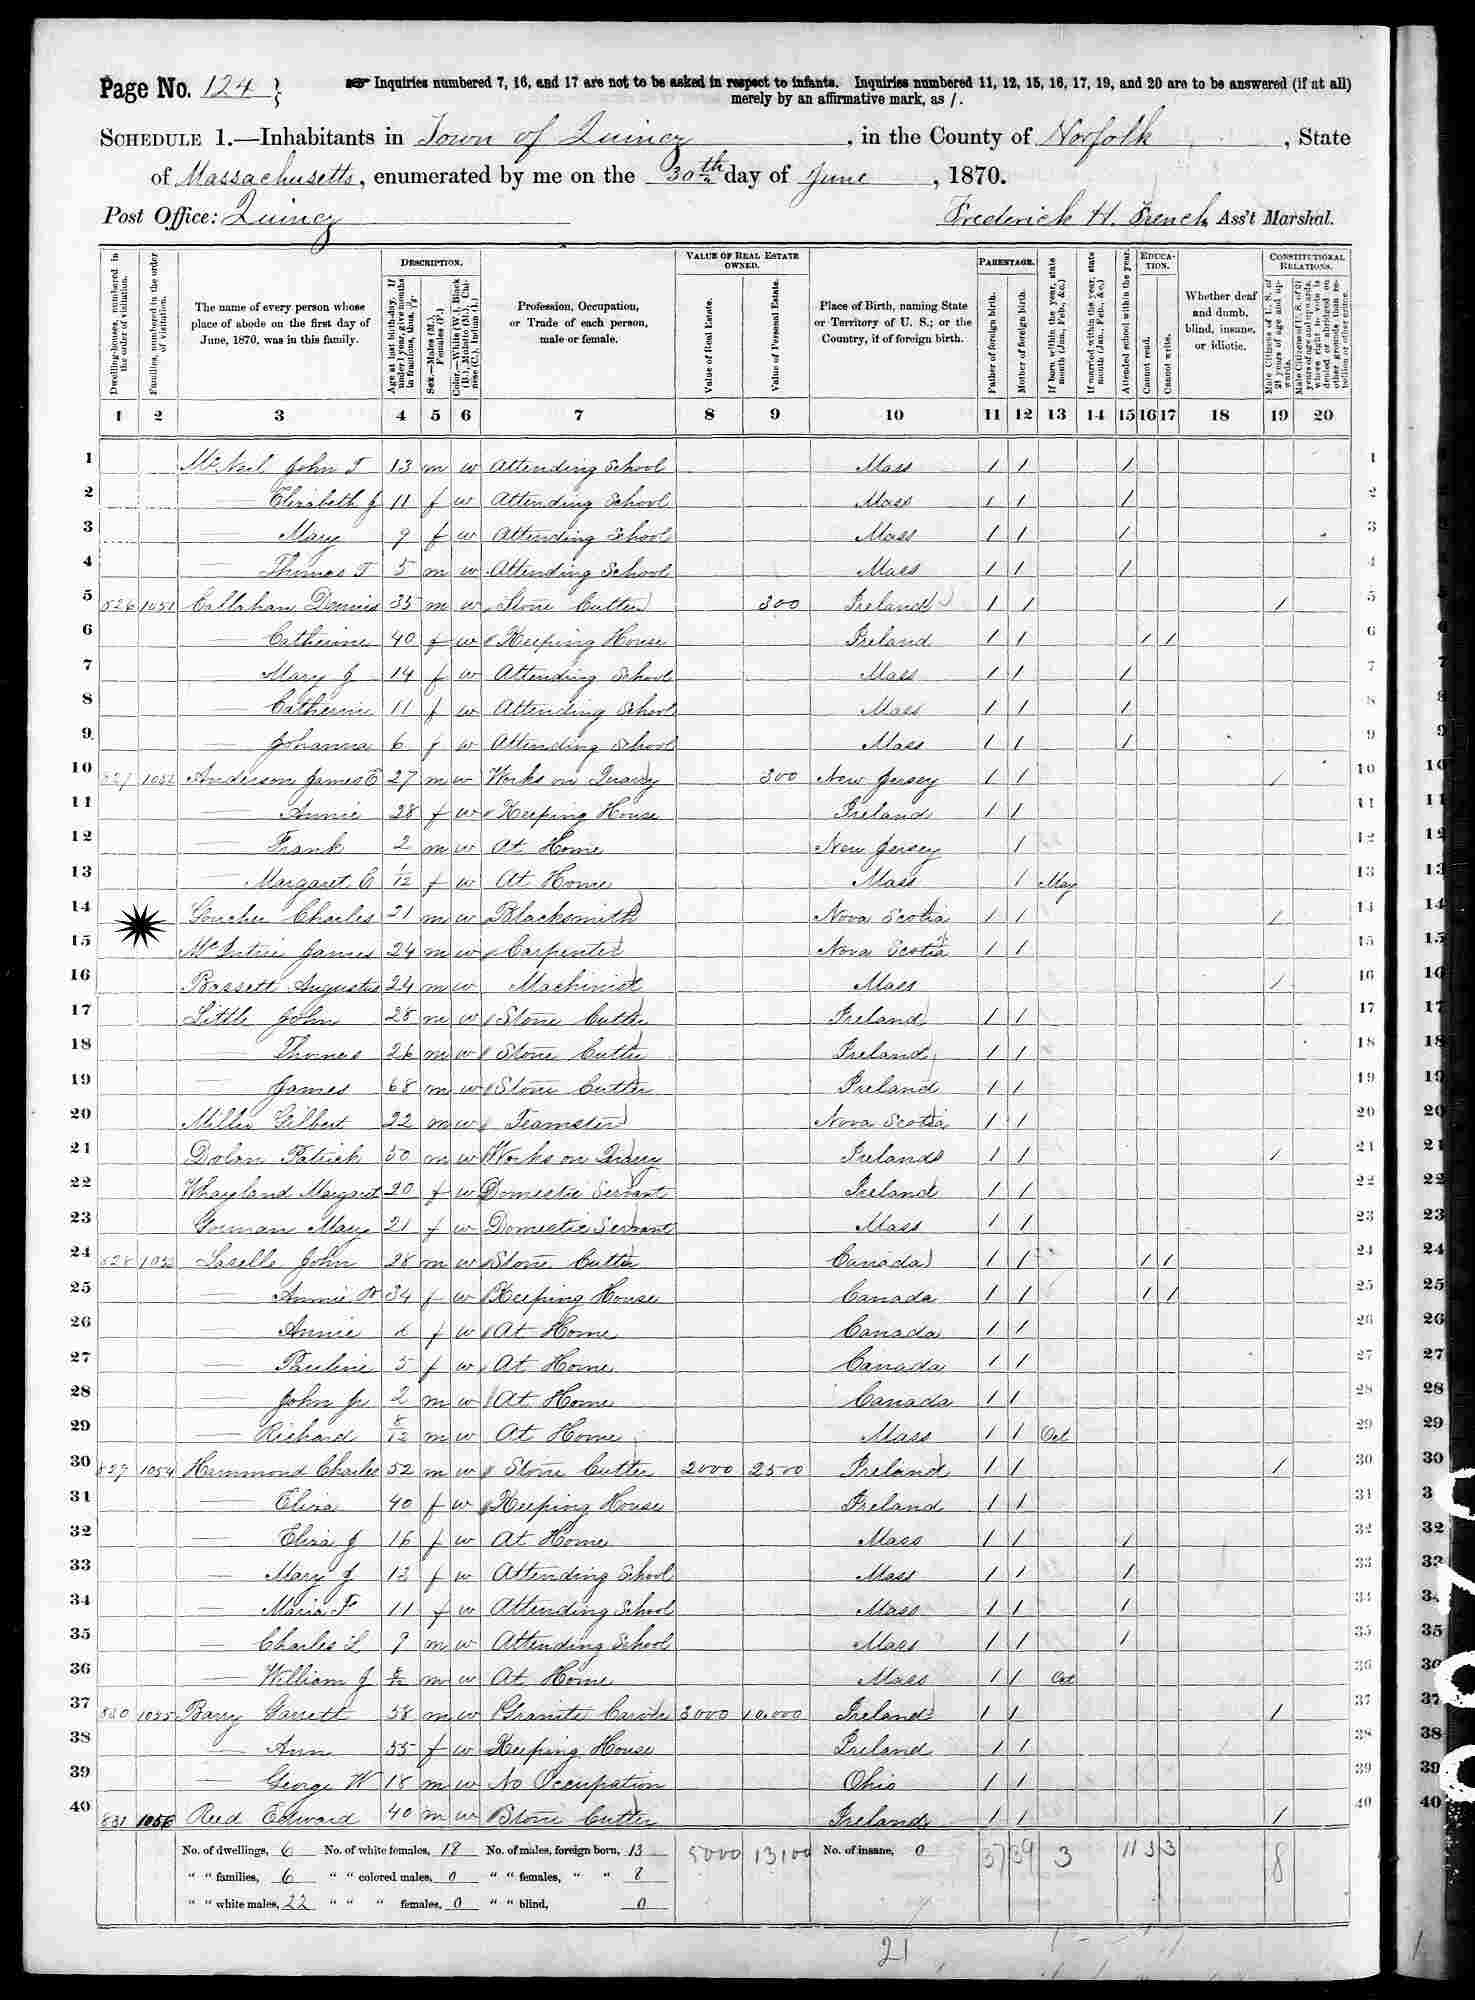 Page No. 124
Inquiries numbered 7, 16, and 17 are not to be asked in respect to infants. Inquiries numbered 11, 12, 15, 16, 17, 19, and 20 are to be answered (if at all)
merely by an affirmative mark, as /.
SCHEDULE 1.—Inhabitants in Town of Quincy, in the County of Norfolk, State
of Massachusetts, enumerated by me on the 30th day of June, 1870.
Post Office: Quincy Frederick H. French, Ass't Marshal.
Dwelling-houses, numbered in the order of visitation.
Families, numbered in the order of visitation.
The name of every person whose place of abode on the first day of June, 1870, was in this family.
DESCRIPTION.
Age at last birth-day. If under 1 year, give months in fractions, thus, 3/12.
Sex.—Males (M.), Females (F.)
Color.—White (W.), Black (B.), Mulatto (M.), Chinese (C.), Indian (I.)
Profession, Occupation, or Trade of each person, male or female.
VALUE OF REAL ESTATE OWNED.
Value of Real Estate.
Value of Personal Estate.
Place of Birth, naming State or Territory of U. S.; or the Country, if of foreign birth.
PARENTAGE.
Father of foreign birth.
Mother of foreign birth.
If born within the year, state month (Jan., Feb., &c.)
If married within the year, state month (Jan., Feb., &c.)
Attended school within the year.
EDUCATION.
Cannot read.
Cannot write.
Whether deaf and dumb, blind, insane, or idiotic.
CONSTITUTIONAL RELATIONS.
Male Citizens of U. S. of 21 years of age and upwards.
Male Citizens of U. S. of 21 years of age and upwards, whose right to vote is denied or abridged on other grounds than rebellion or other crime.
1 2 3 4 5 6 7 8 9 10 11 12 13 14 15 16 17 18 19 20
1 McNeil John T 13 m w Attending School Mass / / / 1
2 — Elizabeth J 11 f w Attending School Mass / / / 2
3 — Mary 9 f w Attending School Mass / / / 3
4 — Thomas T 5 m w Attending School Mass / / / 4
5 826 1051 Callahan Dennis 35 m w Stone Cutter 300 Ireland / / / 5
6 — Catherine 40 f w Keeping House Ireland / / / / 6
7 — Mary J 14 f w Attending School Mass / / / 7
8 — Catherin 11 f w Attending School Mass / / / 8
9 — Johanna 6 f w Attending School Mass / / / 9
10 827 1052 Anderson James E 27 m w Works on Quarry 300 New Jersey / / / 10
11 — Annie 28 f w Keeping House Ireland / / 11
12 — Frank 2 m w At Home New Jersey / 12
13 — Margaret C 1/12 f w At Home Mass / May 13
14 Charles 21 m w Blacksmith Nova Scotia / / / 14
15 McIntire James 24 m w Carpenter Nova Scotia / / 15
16 Bassett Augustus 24 m w Machinist Mass / 16
17 Little John 28 m w Stone Cutter Ireland / / 17
18 — Thomas 26 m w Stone Cutter Ireland / / 18
19 — James 68 m w Stone Cutter Ireland / / 19
20 Miller Gilbert 22 m w Teamster Nova Scotia / / 20
21 Dolan Patrick 50 m w Works on Quarry Ireland / / / 21
22 Whayland Margaret 20 f w Domestic Servant Ireland / / 22
23 Gorman Mary 21 f w Domestic Servant Mass / / 23
24 828 1053 Laselle John 28 m w Stone Cutter Canada / / / / 24
25 — Annie 34 f w Keeping House Canada / / / / 25
26 — Annie f w At Home Canada / / 26
27 — Pauline 5 f w At Home Canada / / 27
28 — John Jr 2 m w At Home Canada / / 28
29 — Richard 8/12 m w At Home Mass / / Oct 29
30 829 1054 Hammond Charles 52 m w Stone Cutter 2000 2500 Ireland / / / 30
31 — Eliza 40 f w Keeping House Ireland / / 31
32 — Eliza J 16 f w At Home Mass / / / 32
33 — Mary J 12 f w Attending School Mass / / / 33
34 — Maria F 11 f w Attending School Mass / / / 34
35 — Charles L 9 m w Attending School Mass / / / 35
36 — William J 8/12 m w At Home Mass / / Oct 36
37 830 1055 Barry Garrett 58 m w Granite Carver 3000 10,000 Ireland / / / 37
38 — Ann 55 f w Keeping House Ireland / / 38
39 — George W 18 m w No Occupation Ohio / / 39
40 831 1056 Reed Edward 40 m w Stone Cutter Ireland / / / 40
No. of dwellings, 6 No. of white females, 18 No. of males, foreign born, 13 5000 13100 No. of insane, 0 37 39 3 11 3 3 8
" " families, 6 " " colored males, 0 " " females, " " 8
" " white males, 22 " " " females, 0 " " blind, 0
21